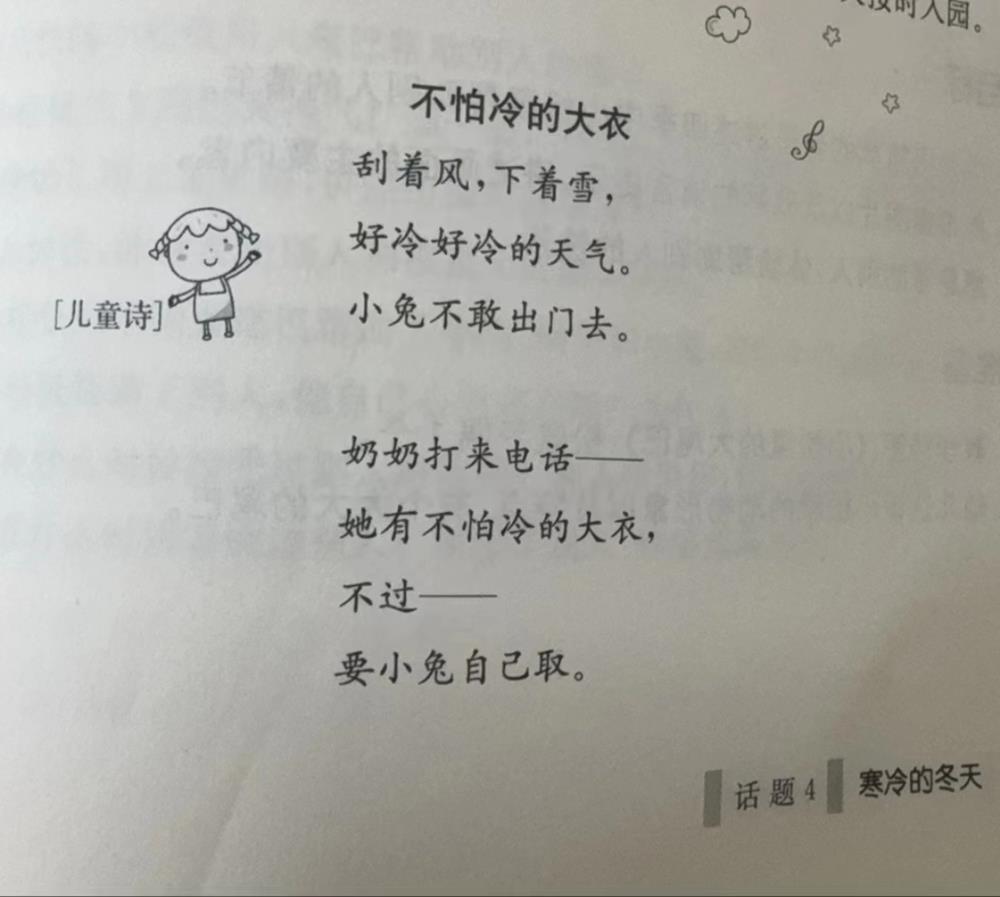 按时入园。
不怕冷的大衣
刮着风,下着雪,
好冷好冷的天气。
[儿童诗]
小兔不敢出门去。
奶奶打来电话——
她有不怕冷的大衣,
不过——
要小兔自己取。
话题4 寒冷的冬天